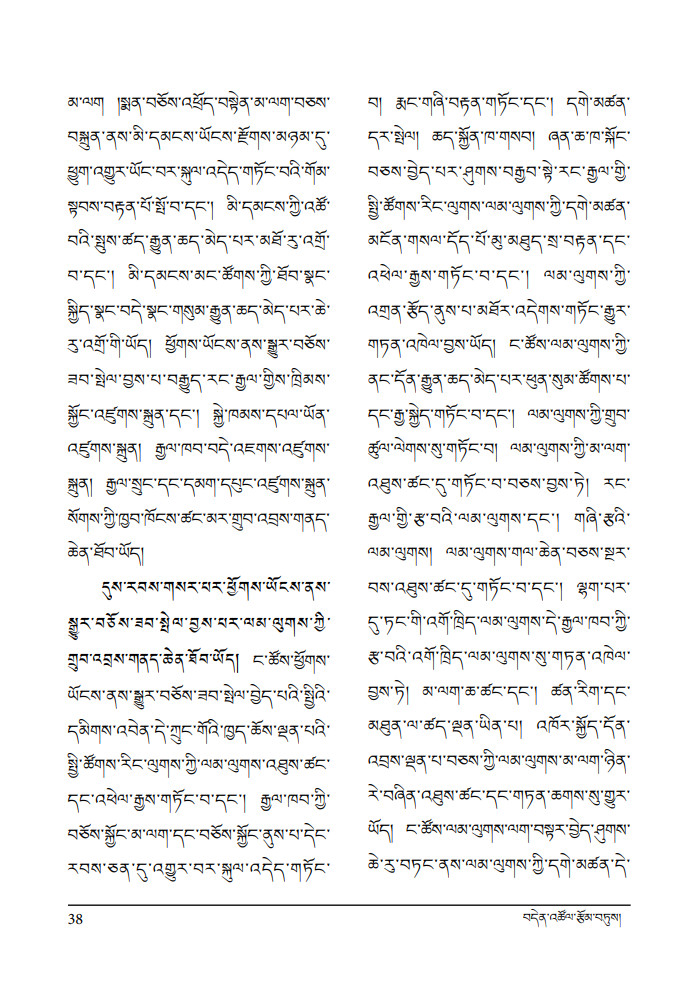 མ་ལག །སྨན་བཅོས་འཕྲོད་བསྟེན་མ་ལག་བཅས་
བསྐྲུན་ནས་མི་དམངས་ཡོངས་རྫོགས་མཉམ་དུ་
ཕྱུག་འགྱུར་ཡོང་བར་སྐུལ་འདེད་གཏོང་བའི་གོམ་
སྟབས་བརྟན་པོ་སྤོ་བ་དང་། མི་དམངས་ཀྱི་འཚོ་
བའི་སྤུས་ཚད་རྒྱུན་ཆད་མེད་པར་མཐོ་རུ་འགྲོ་
བ་དང་། མི་དམངས་མང་ཚོགས་ཀྱི་ཐོབ་སྣང་
སྐྱིད་སྣང་བདེ་སྣང་གསུམ་རྒྱུན་ཆད་མེད་པར་ཆེ་
རུ་འགྲོ་གི་ཡོད། ཕྱོགས་ཡོངས་ནས་སྒྱུར་བཅོས་
ཟབ་སྤེལ་བྱས་པ་བརྒྱུད་རང་རྒྱལ་གྱིས་ཁྲིམས་
སྐྱོང་འཛུགས་སྐྲུན་དང་། སྐྱེ་ཁམས་དཔལ་ཡོན་
འཛུགས་སྐྲུན། རྒྱལ་ཁབ་བདེ་འཇགས་འཛུགས་
སྐྲུན། རྒྱལ་སྲུང་དང་དམག་དཔུང་འཛུགས་སྐྲུན་
སོགས་ཀྱི་ཁྱབ་ཁོངས་ཚང་མར་གྲུབ་འབྲས་གནད་
ཆེན་ཐོབ་ཡོད།
དུས་རབས་གསར་པར་ཕྱོགས་ཡོངས་ནས་
སྒྱུར་བཅོས་ཟབ་སྤེལ་བྱས་པར་ལམ་ལུགས་ཀྱི་
གྲུབ་འབྲས་གནད་ཆེན་ཐོབ་ཡོད། ང་ཚོས་ཕྱོགས་
ཡོངས་ནས་སྒྱུར་བཅོས་ཟབ་སྤེལ་བྱེད་པའི་སྤྱིའི་
དམིགས་འབེན་དེ་ཀྲུང་གོའི་ཁྱད་ཆོས་ལྡན་པའི་
སྤྱི་ཚོགས་རིང་ལུགས་ཀྱི་ལམ་ལུགས་འཐུས་ཚང་
དང་འཕེལ་རྒྱས་གཏོང་བ་དང་། རྒྱལ་ཁབ་ཀྱི་
བཅོས་སྐྱོང་མ་ལག་དང་བཅོས་སྐྱོང་ནུས་པ་དེང་
རབས་ཅན་དུ་འགྱུར་བར་སྐུལ་འདེད་གཏོང་
བ། རྨང་གཞི་བརྟན་གཏོང་དང་། དགེ་མཚན་
དར་སྤེལ། ཆད་སྐྱོན་ཁ་གསབ། ཞན་ཆ་ཁ་སྐོང་
བཅས་བྱེད་པར་ཤུགས་བརྒྱབ་སྟེ་རང་རྒྱལ་གྱི་
སྤྱི་ཚོགས་རིང་ལུགས་ལམ་ལུགས་ཀྱི་དགེ་མཚན་
མངོན་གསལ་དོད་པོ་མུ་མཐུད་སྲ་བརྟན་དང་
འཕེལ་རྒྱས་གཏོང་བ་དང་། ལམ་ལུགས་ཀྱི་
འགྲན་རྩོད་ནུས་པ་མཐོར་འདེགས་གཏོང་རྒྱུར་
གཏན་འཁེལ་བྱས་ཡོད། ང་ཚོས་ལམ་ལུགས་ཀྱི་
ནང་དོན་རྒྱུན་ཆད་མེད་པར་ཕུན་སུམ་ཚོགས་པ་
དང་རྒྱ་སྐྱེད་གཏོང་བ་དང་། ལམ་ལུགས་ཀྱི་གྲུབ་
ཚུལ་ལེགས་སུ་གཏོང་བ། ལམ་ལུགས་ཀྱི་མ་ལག་
འཐུས་ཚང་དུ་གཏོང་བ་བཅས་བྱས་ཏེ། རང་
རྒྱལ་གྱི་རྩ་བའི་ལམ་ལུགས་དང་། གཞི་རྩའི་
ལམ་ལུགས། ལམ་ལུགས་གལ་ཆེན་བཅས་སྔར་
བས་འཐུས་ཚང་དུ་གཏོང་བ་དང་། ལྷག་པར་
དུ་ཏང་གི་འགོ་ཁྲིད་ལམ་ལུགས་དེ་རྒྱལ་ཁབ་ཀྱི་
རྩ་བའི་འགོ་ཁྲིད་ལམ་ལུགས་སུ་གཏན་འཁེལ་
བྱས་ཏེ། མ་ལག་ཆ་ཚང་དང་། ཚན་རིག་དང་
མཐུན་ལ་ཚད་ལྡན་ཡིན་པ། འཁོར་སྐྱོད་དོན་
འབྲས་ལྡན་པ་བཅས་ཀྱི་ལམ་ལུགས་མ་ལག་ཉིན་
རེ་བཞིན་འཐུས་ཚང་དང་གཏན་ཆགས་སུ་གྱུར་
ཡོད། ང་ཚོས་ལམ་ལུགས་ལག་བསྟར་བྱེད་ཤུགས་
ཆེ་རུ་བཏང་ནས་ལམ་ལུགས་ཀྱི་དགེ་མཚན་དེ་
38
བདེན་འཚོལ་རྩོམ་བཏུས།